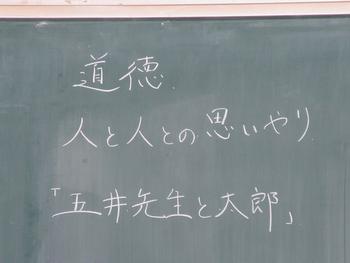 道徳
人と人との思いやり
「五井先生と太郎」